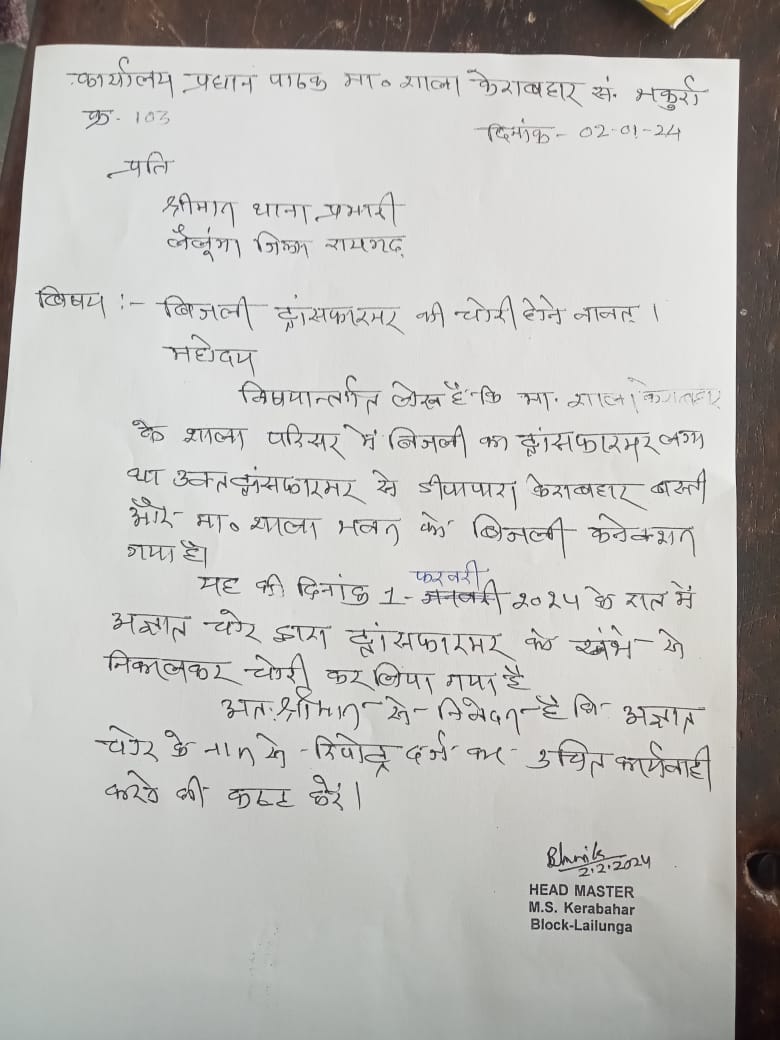 कार्यालय प्रधान पाठक मा० शाला केराबहार सं. भकुर्रा
क्र. 103
दिनांक - 02-01-24
प्रति
श्रीमान थाना प्रभारी
लैलूंगा जिला रायगढ़
विषय :- बिजली ट्रांसफारमर की चोरी होने बाबत् ।
महोदय
विषयान्तर्गत लेख है कि मा. शाला केराबहार
के शाला परिसर में बिजली का ट्रांसफारमर लगा
था उक्त ट्रांसफारमर से डीपापारा केराबहार बस्ती
और मा० शाला भवन को बिजली कनेक्शन
गया है।
यह की दिनांक 1- फरवरी 2024 के रात में
अज्ञात चोर द्वारा ट्रांसफारमर को खंभे से
निकालकर चोरी कर लिया गया है
अतः श्रीमान से निवेदन है कि अज्ञात
चोर के नाम से रिपोर्ट दर्ज कर उचित कार्यवाही
करने की कष्ट करें।
2.2.2024
HEAD MASTER
M.S. Kerabahar
Block-Lailunga